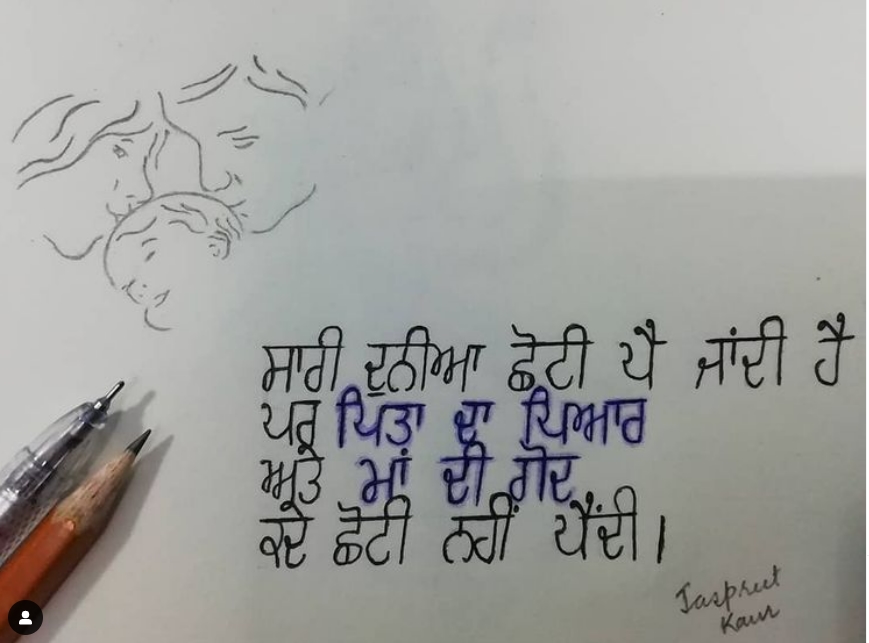 ਸਾਰੀ ਦੁਨੀਆ ਛੋਟੀ ਪੈ ਜਾਂਦੀ ਹੈ
ਪਰ ਪਿਤਾ ਦਾ ਪਿਆਰ
ਅਤੇ ਮਾਂ ਦੀ ਗੋਦ
ਕਦੇ ਛੋਟੀ ਨਹੀਂ ਪੈਂਦੀ।
Jaspreet
Kaur